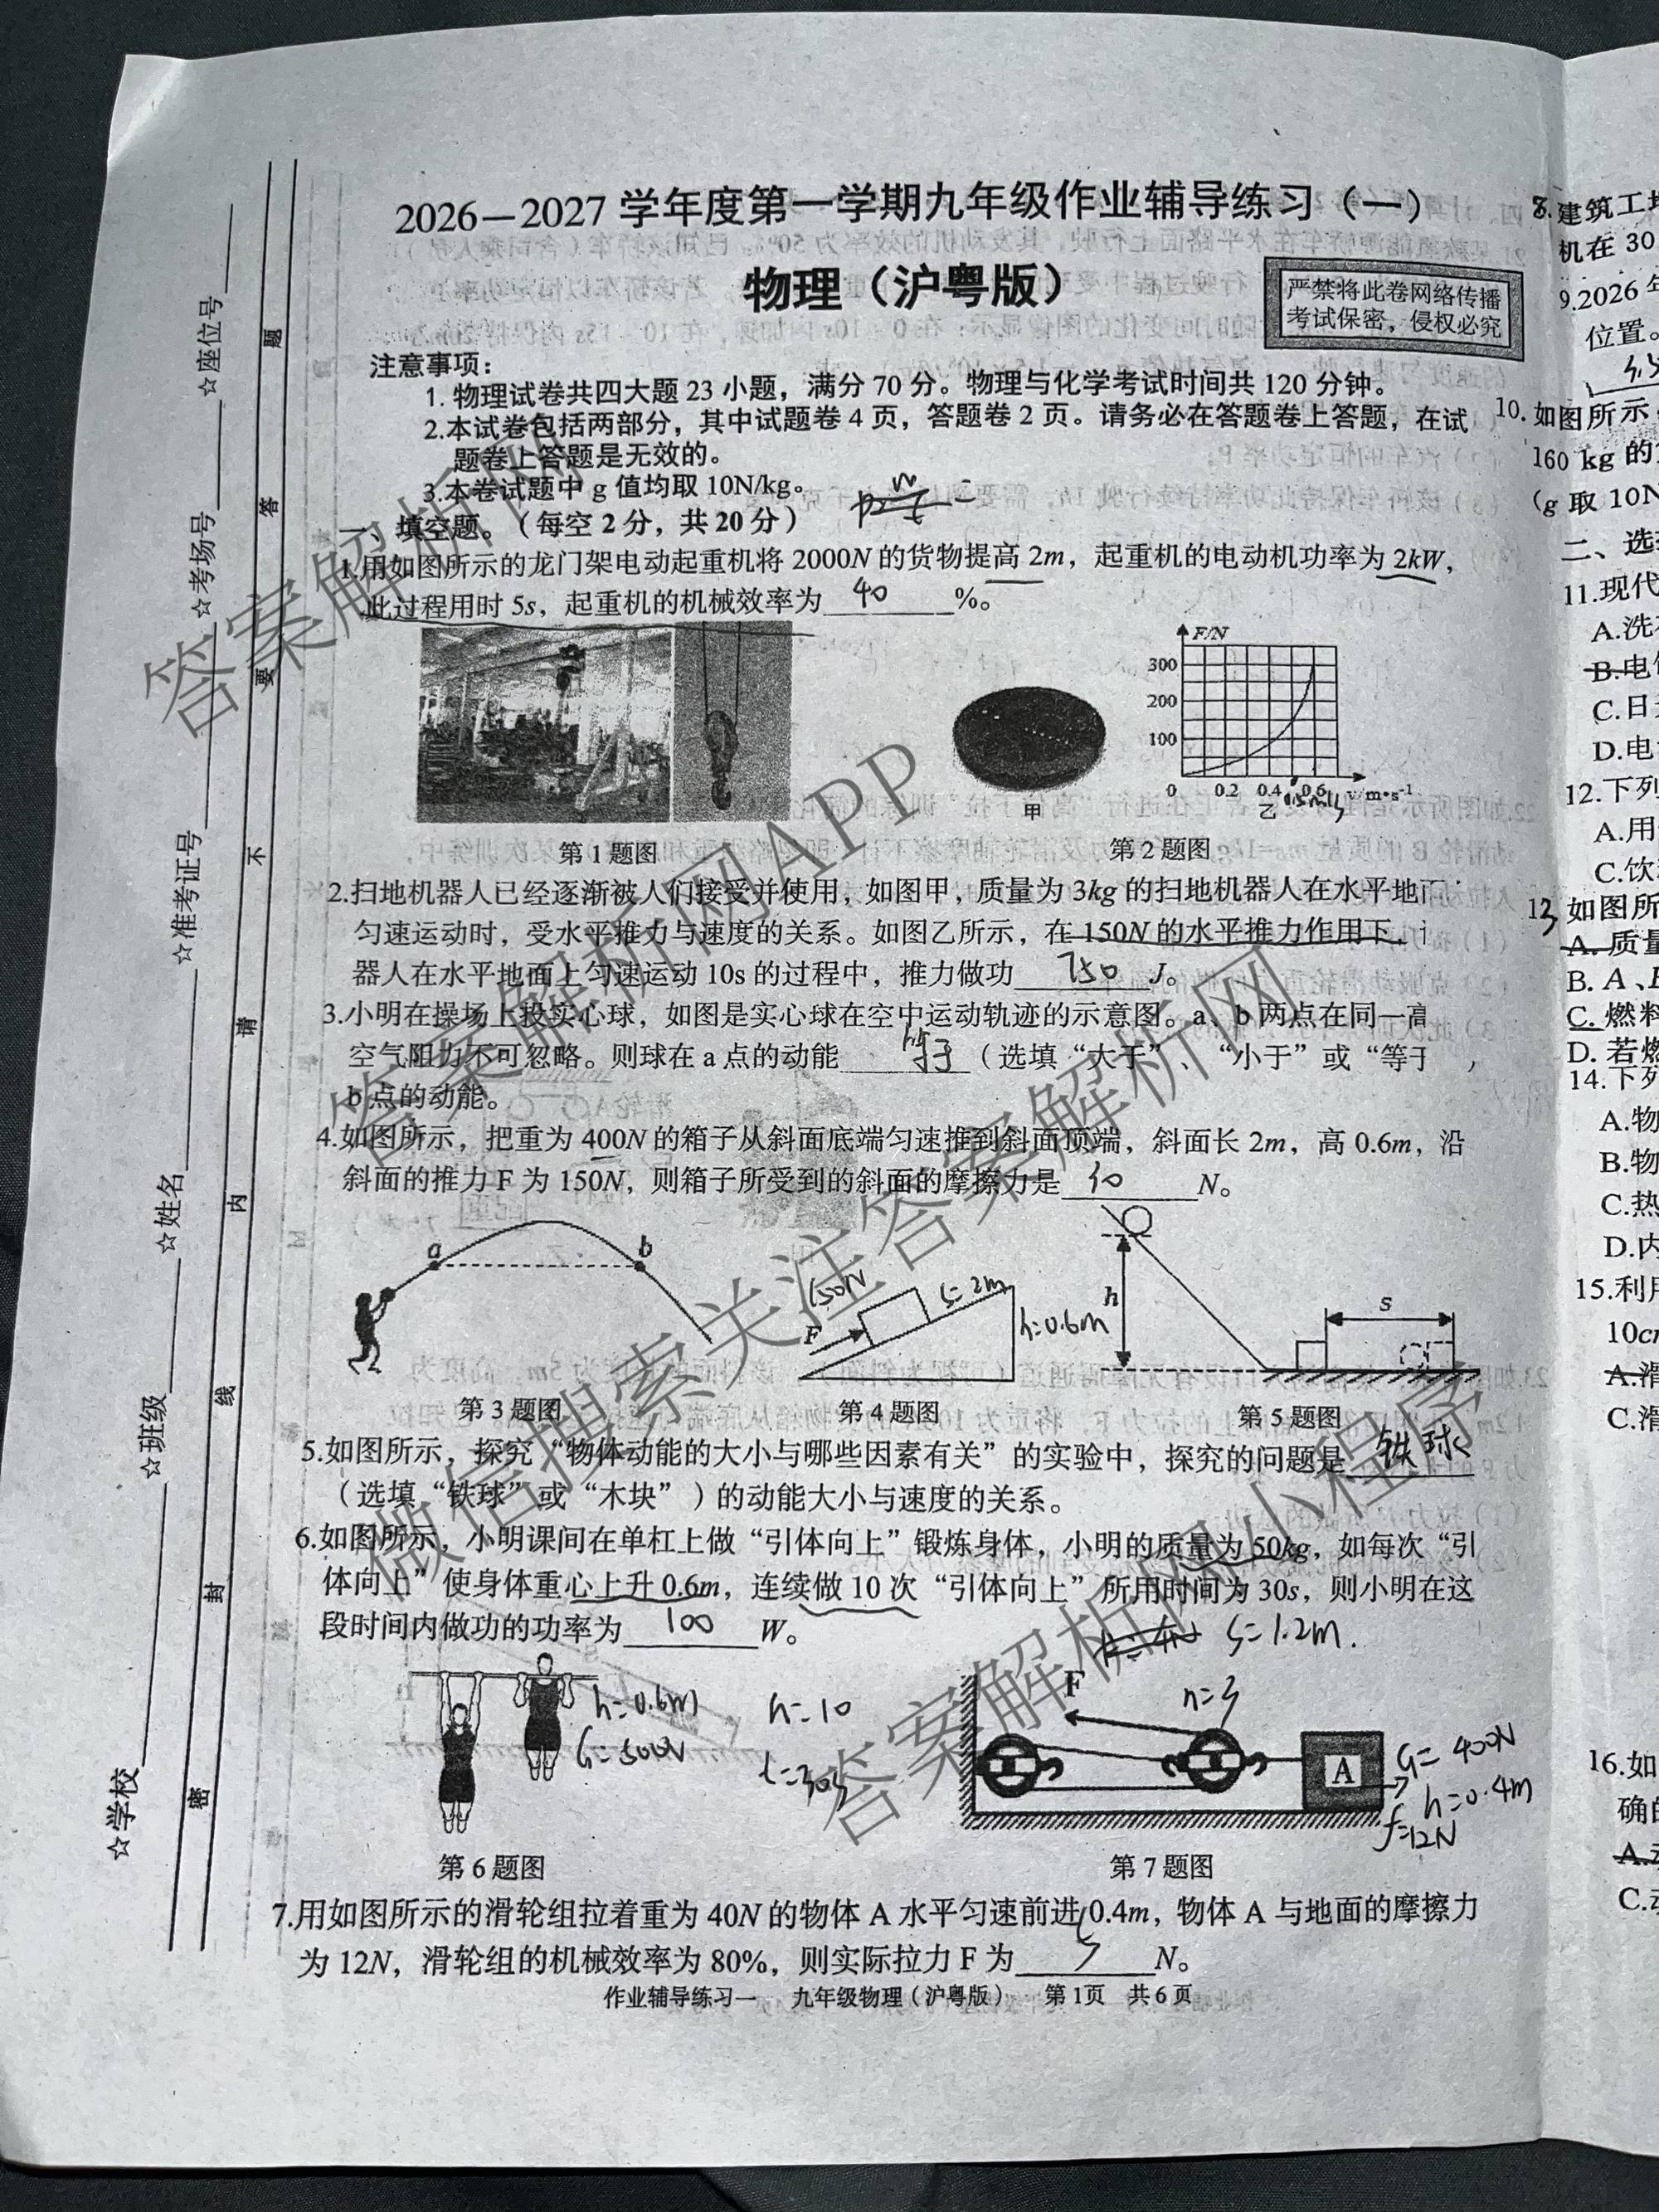 2026—2027学年度第一学期九年级作业辅导练习（一）
物理（沪粤版）
严禁将此卷网络传播
考试保密，侵权必究
注意事项：
1. 物理试卷共四大题 23 小题，满分 70 分。物理与化学考试时间共 120 分钟。
2.本试卷包括两部分，其中试题卷 4 页，答题卷 2 页。请务必在答题卷上答题，在试
题卷上答题是无效的。
3.本卷试题中 g 值均取 10N/kg。
一、填空题。（每空 2 分，共 20 分）
1.用如图所示的龙门架电动起重机将 2000N 的货物提高 2m，起重机的电动机功率为 2kW，
此过程用时 5s，起重机的机械效率为 40 %。
F/N
300
200
100
0 0.2 0.4 0.6 v/m·s⁻¹
0.5m/s
甲
乙
第 1 题图
第 2 题图
2.扫地机器人已经逐渐被人们接受并使用，如图甲，质量为 3kg 的扫地机器人在水平地
匀速运动时，受水平推力与速度的关系。如图乙所示，在 150N 的水平推力作用下，
器人在水平地面上匀速运动 10s 的过程中，推力做功 750 J。
3.小明在操场上投实心球，如图是实心球在空中运动轨迹的示意图。a、b 两点在同一高
空气阻力不可忽略。则球在 a 点的动能 等于 （选填“大于”、 “小于”或“等于
b 点的动能。
4.如图所示，把重为 400N 的箱子从斜面底端匀速推到斜面顶端，斜面长 2m，高 0.6m，沿
斜面的推力 F 为 150N，则箱子所受到的斜面的摩擦力是 N。
a
b
150N
F
s=2m
h=0.6m
h
s
第 3 题图
第 4 题图
第 5 题图
5.如图所示，探究“物体动能的大小与哪些因素有关”的实验中，探究的问题是 铁球
（选填“铁球”或“木块”）的动能大小与速度的关系。
6.如图所示，小明课间在单杠上做“引体向上”锻炼身体，小明的质量为 50kg，如每次“引
体向上”使身体重心上升 0.6m，连续做 10 次“引体向上”所用时间为 30s，则小明在这
段时间内做功的功率为 100 W。
h=0.6m
G=500N
n=10
t=30s
s=1.2m.
F
n=3
A
G=400N
h=0.4m
f=12N
第 6 题图
第 7 题图
7.用如图所示的滑轮组拉着重为 40N 的物体 A 水平匀速前进 0.4m，物体 A 与地面的摩擦力
为 12N，滑轮组的机械效率为 80%，则实际拉力 F 为 N。
作业辅导练习一 九年级物理（沪粤版） 第 1页 共 6 页
☆学校
☆班级
☆姓名
☆准考证号
☆考场号
☆座位号
密 封 线 内 请 不 要 答 题
答案解析网
答案解析网APP
答案解析网
微信搜索关注答案解析网
答案解析网小程序
8.建筑工地
机在 30
9.2026 年
位置。
10.如图所示
160 kg 的
（g 取 10N
二、选
11.现代
A.洗
B.电
C.日
D.电
12.下列
A.用
C.饮
13 如图所
A. 质量
B. A、
C. 燃料
D. 若燃
14.下列
A.物
B.物
C.热
D.内
15.利用
10c
A.滑
C.滑
16.如
确的
A.
C.